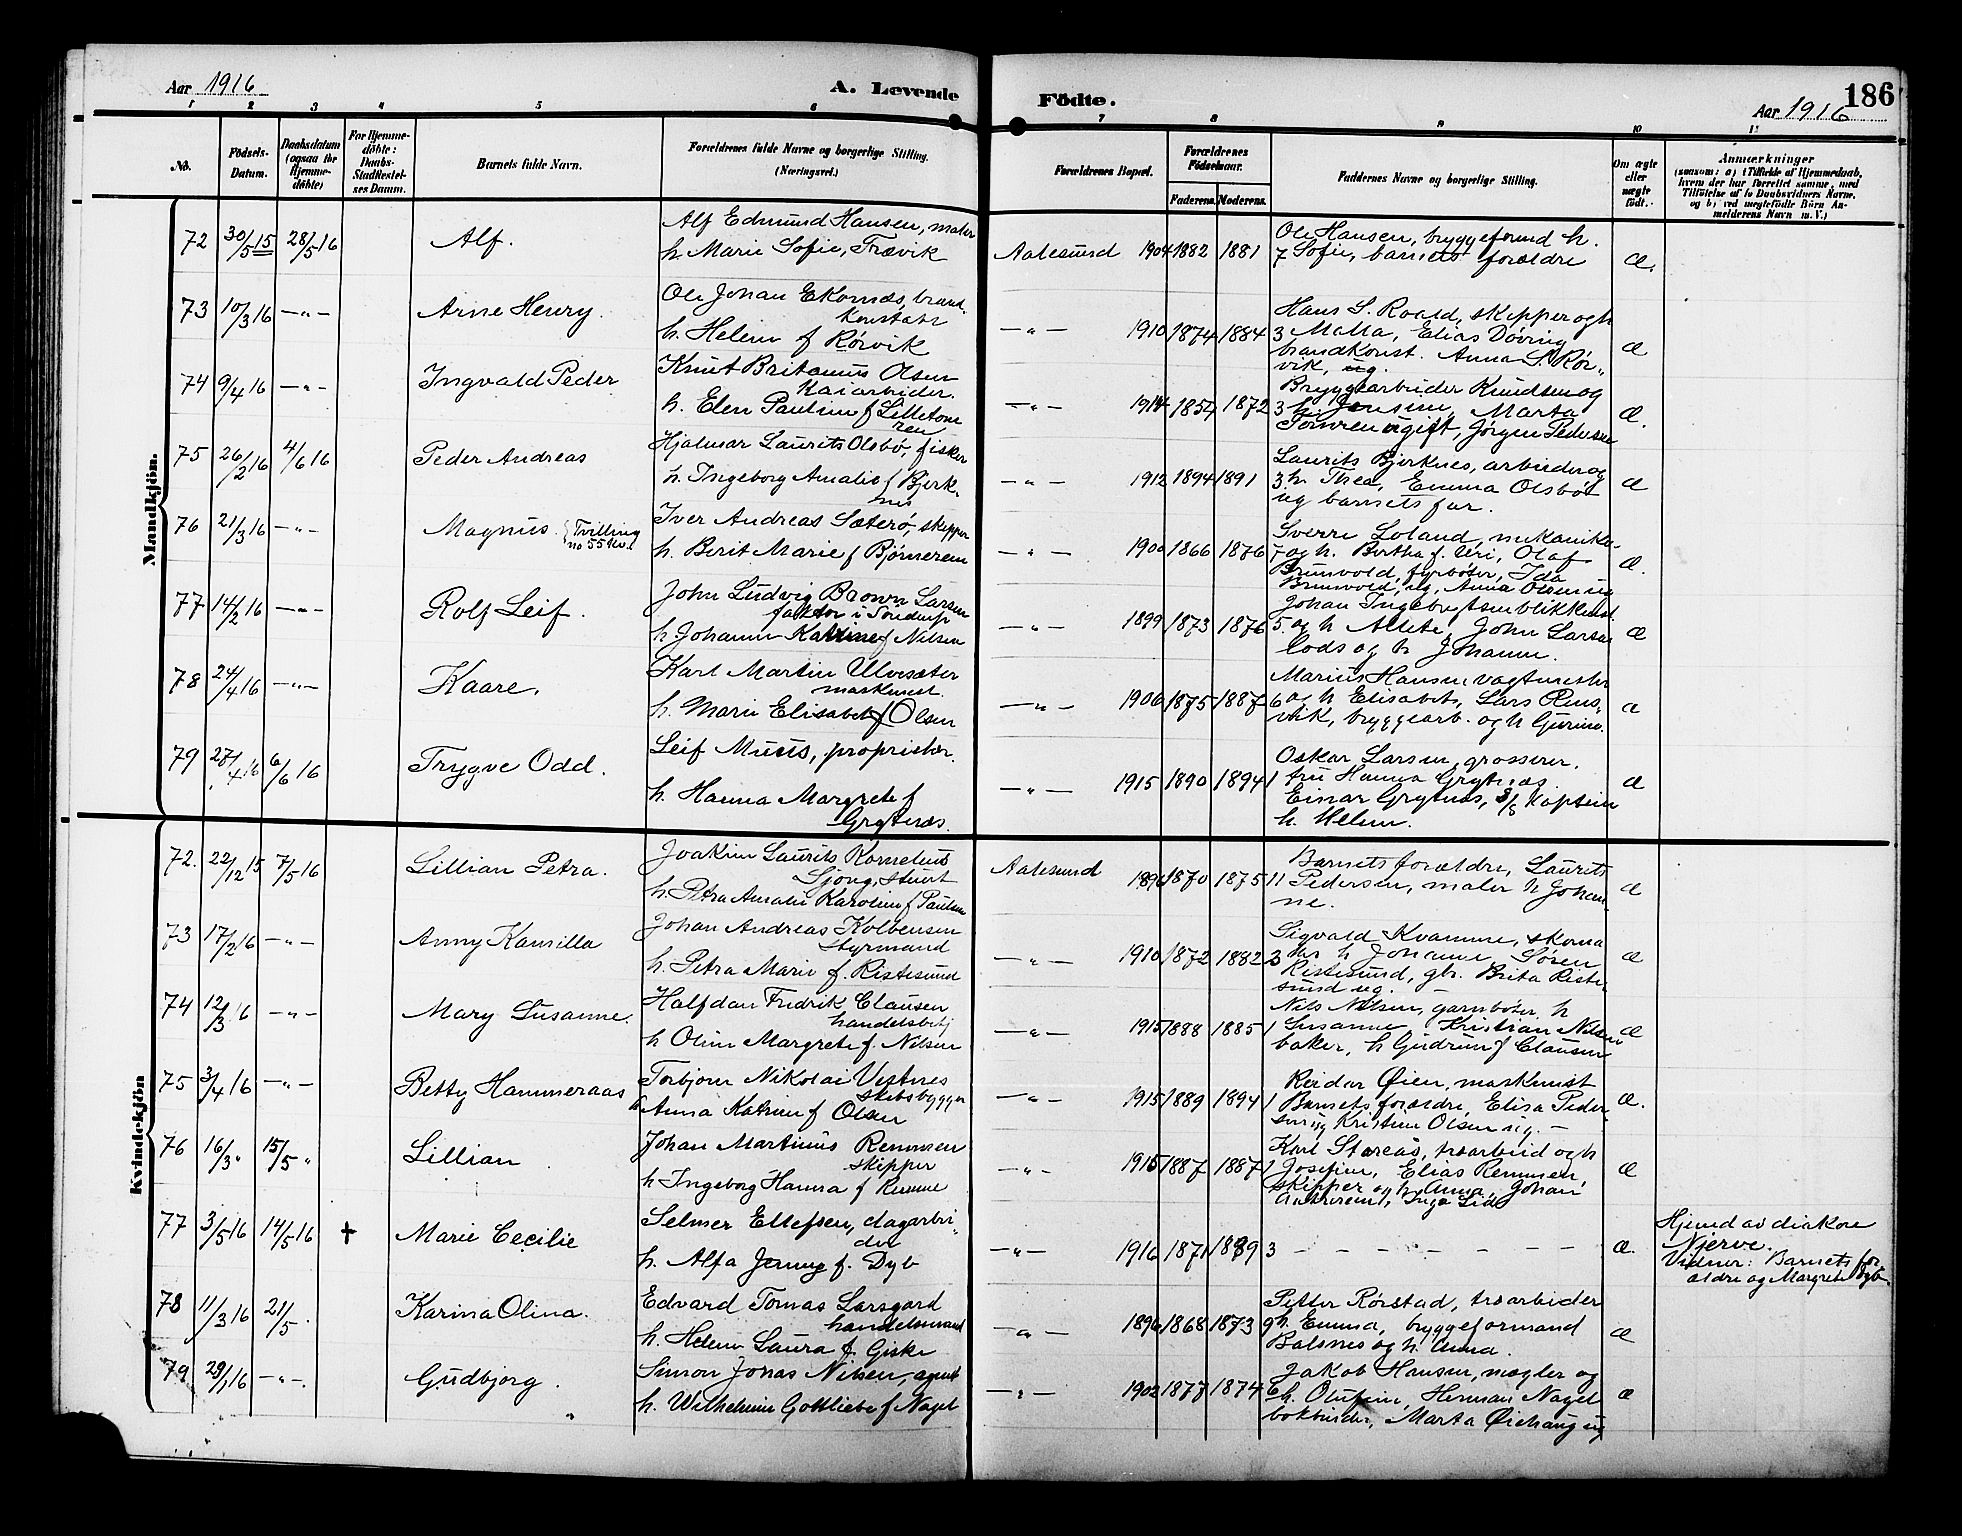 Aar 1916
A. Levende
Födte.
Aar 1916
186
1 2 3 4 5 6 7 8 9 10 11
No.
Födsels-
Datum.
Daabsdatum
(ogsaa for
Hjemme-
döbte)
For Hjemme-
döbte:
Daabs-
Stadfestel-
ses Datum.
Barnets fulde Navn.
Forældrenes fulde Navne og borgerlige Stilling.
(Næringsvei.)
Forældrenes Bopæl.
Forældrenes
Födselsaar.
Faderens. Moderens.
Faddernes Navne og borgerlige Stilling.
Om ægte
eller
uægte
født.
Anmærkninger
(saasom: a) i Tilfælde af Hjemmedaab,
hvem der har forrettet samme, med
Tilføielse af to Daabsvidners Navne,
og b) ved uægtefødte Börn An-
melderens Navn m. V.)
Mandkjön.
72 30/5 15 28/5 16 Alf.
Alf Edmund Hansen, maler
h. Marie Sofie, Trævik
Aalesund 1904 1882 1881 7
Ole Hansen, bryggeformd h.
Sofie, barnets forældre
Æ.
73 10/3 16 —"— Arne Henry.
Ole Johan Ekornæs, brand
konstabl
h. Heline f Rørvik
—"— 1910 1874 1884 3
Hans S. Roald, skipper og h
Malla, Elias Døving
brandkonst. Anna S. Rør-
vik, ug.
Æ
74 9/4 16 —"— Ingvald Peder
Knut Britanus Olsen
Kaiarbeider.
h. Elen Pauline f Lilletone
ren
—"— 1914 1854 1872 3
Bryggearbeider Knudsen og
h. Jensine, Marta
ugift, Jørgen Pedersen
Æ.
75 26/2 16 4/6 16 Peder Andreas
Hjalmar Laurits Olsbø, fisker
h. Ingeborg Amalie f Bjerk-
nes
—"— 1912 1894 1891 3
Laurits Bjerknes, arbeider og
h. Thea, Emma Olsbøe
ug barnets far.
Æ
76 21/3 16 —"— Magnus. {Tvilling
no 55 Kv.
Iver Andreas Sæterø, skipper
h. Berit Marie f Bjørnerem
—"— 1900 1866 1876 7
Sverre Loland, mekanike-
og h. Bertha f. Uri, Olaf
Brunvold, fyrbøter, Ida
Brunvold, ug, Anna Olsen ug
Æ.
77 14/2 16 —"— Rolf Leif.
John Ludvig Brown Larsen
faktor i
h. Johanne Katrine f Nilsen
—"— 1899 1873 1876 5
Johan Ingebrigtsen blikkensl.
og h Allete, John Larsen
lods og h Johanne.
Æ
78 24/4 16 —"— Kaare.
Karl Martin Ulvesæter
maskinist.
h. Marie Elisabet f Olsen
—"— 1906 1875 1887 6
Marius Hansen, vagtmester
og h Elisabet, Lars Rens-
vik, bryggearb. og h Gurine.
Æ
79 28/4 16 6/6 16 Trygve Odd.
Leif Muus, proprietær.
h. Hanna Margrete f
Grytnæs.
—"— 1915 1890 1894 1
Oskar Larsen, grosserer.
fru Hanna Grytnæs
Einar Grytnæs, Kaptein
h. Helene.
Æ
Kvindekjön
72. 22/12 15 7/5 16 Lillian Petra.
Joakim Laurits Kornelius
Sjong, stuert
h. Petra Amalie Karoline f Paulsen
Aalesund 1896 1870 1875 11
Barnets forældre, Laurits
Pedersen, maler h Johan-
ne.
Æ
73 17/2 16 —"— Anny Kamilla
Johan Andreas Kolbensen
styrmand
h. Petra Marie f. Ristesund
—"— 1910 1872 1882 3
Sigvald Kvamme, skoma
ker h Johanne, Søren
Ristesund, gbr. Brita Riste-
sund ug.
Æ
74 12/3 16 —"— Mary Susanne.
Halfdan Fredrik Clausen
handelsbetj
h Oline Margrete f. Nilsen
—"— 1915 1888 1885 1
Nils Nilsen, garnbøter, h
Susanne, Kristian Nilsen
baker, h Gudrun f Clausen
Æ
75 3/4 16 —"— Betty Hammeraas
Torbjørn Nikolai Vestnes
skibsbygger
h Anna Katrine f Olsen
—"— 1915 1889 1894 1
Reidar Øien, maskinist
Barnets forældre, Elisa Peder-
sen ug Kristine Olsen ug. —
Æ.
76 16/3 " 15/5 " Lillian
Johan Martinus Remmen
skipper
h Ingeborg Hanna f Remme
—"— 1915 1887 1887 1
Karl Storeås, træarbeid og h
Josefine, Elias Remmen,
skipper og h. Anna, Johan
Inga Lid
Æ
77 3/5 16 14/5 16 + Marie Cecilie
Selmer Ellefsen, dagarbei-
der
h. Alfa Jenny f. Dyb
—"— 1916 1871 1889 3 — — — — — — — Æ.
Hjemd av diakon
Njerve.
Vidner: Barnets for-
ældre og Margrete Dyb.
78 11/3 16 21/5 . Karina Olina.
Edvard Tomas Larsgard
handelsmand
h. Helene Laura f. Giske
—"— 1896 1868 1873 9
Petter Rørstad, træarbeider
h. Emma, bryggeformand
Balsnes og h. Anna.
Æ
79 29/1 16 —"—. Gudbjørg.
Simon Jonas Nilsen, agent
h. Wilhelmine Gottliebe f Nagel
—"— 1902 1877 1874 6
Jakob Hansen, mægler og
h. Olufine, Herman Nagel
bokbinder, Marta Øiehaug ug
Æ